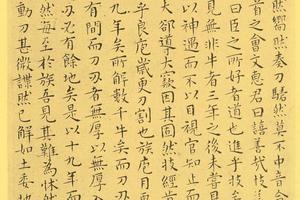 然嚮然奏刀騞然莫不中音合
首之會文惠君曰譆善哉技
曰臣之所好者道也進乎技
見無非牛者三年之後未嘗見
以神遇而不以目視官知止而
大郤導大窾因其固然技經肯
乎良庖歲更刀割也族庖月更
九年矣所解數千牛矣而刀刃
有間而刀刃者無厚以無厚入
刃必有餘地矣是以十九年而
然至於族吾見其難為怵然
動刀甚微謋然已解如土委地